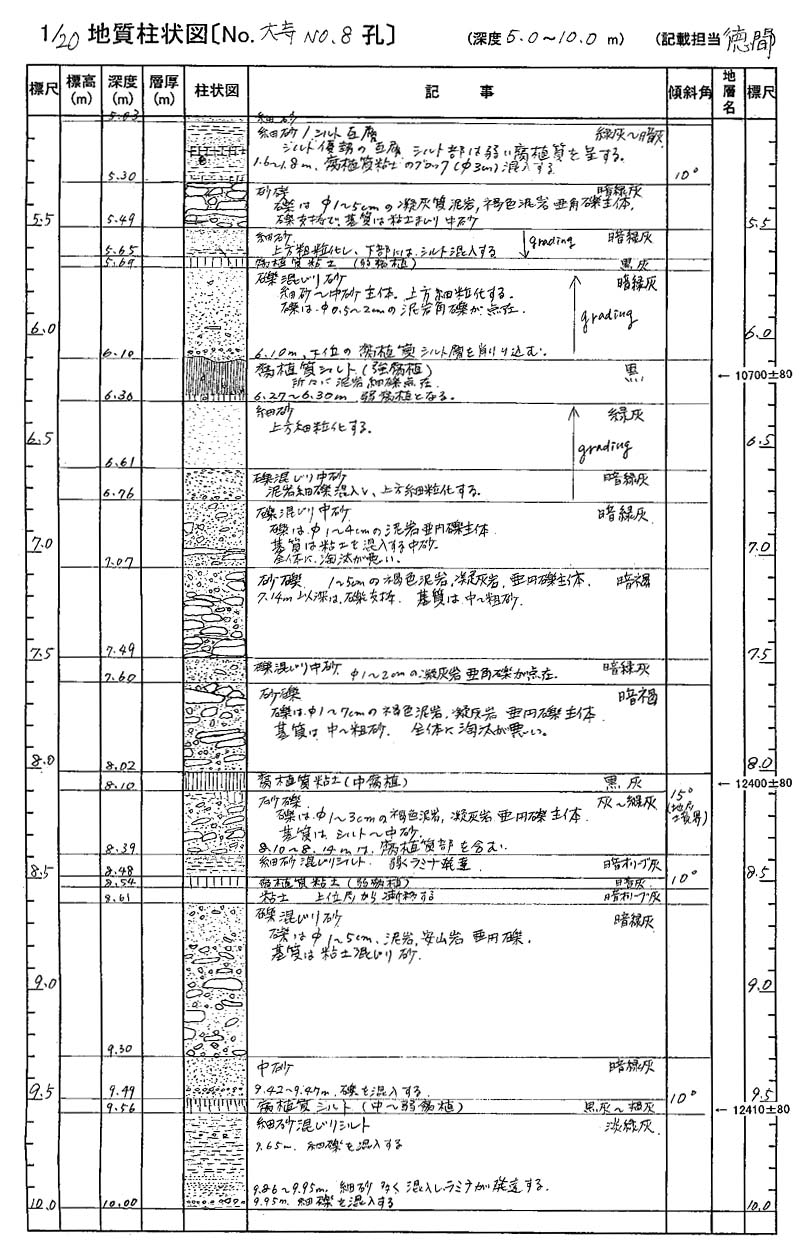 1/20 地質柱状図〔No. 大寺 NO. 8 孔〕 (深度 5.0〜10.0 m) (記載担当 徳間
標尺 標高(m) 深度(m) 層厚(m) 柱状図 記事 傾斜角 地層名 標尺
5.03 細砂
細砂/シルト互層 緑灰〜暗灰
シルト優勢の互層 シルト部は弱い腐植質を呈する。
腐植質粘土のブロック(φ3cm)混入する
5.30 10°
砂礫 暗緑灰
礫はφ1〜5cmの凝灰質泥岩, 褐色泥岩 亜角礫主体.
5.5 5.49 礫支持で, 基質は粘土まじり中砂 5.5
細砂 grading 暗緑灰
5.65 上方粗粒化し, 下部には, シルト混入する
5.69 腐植質粘土 (弱腐植) 黒灰
礫混じり砂 暗緑灰
細砂〜中砂主体. 上方細粒化する.
礫は φ0.5〜2cmの泥岩角礫が点在. grading
6.0 6.0
6.10 6.10m, 下位の腐植質シルト層を削り込む.
腐植質シルト (強腐植) 黒 ← 10700±80
所々に泥岩細礫点在
6.30 6.27〜6.30m 弱腐植となる.
細砂 緑灰
上方細粒化する.
6.5 grading 6.5
6.61
礫混じり中砂 暗緑灰
6.76 泥岩細礫混入し, 上方細粒化する.
礫混じり中砂 暗緑灰
礫はφ1〜4cmの泥岩亜円礫主体
7.0 基質は粘土を混入する中砂. 7.0
7.07 全体に淘汰が悪い.
砂礫 1〜5cmの褐色泥岩, 凝灰岩, 亜円礫主体. 暗褐
7.14m以深は, 礫支持. 基質は中〜粗砂.
7.5 7.49 7.5
7.60 礫混じり中砂. φ1〜2cmの凝灰岩 亜角礫が点在. 暗緑灰
砂礫 暗褐
礫はφ1〜7cmの褐色泥岩, 凝灰岩 亜円礫主体.
基質は, 中〜粗砂. 全体に淘汰が悪い.
8.0 8.02 8.0
8.10 腐植質粘土 (中腐植) 黒灰 ← 12400±80
砂礫 灰〜緑灰 15°
礫はφ1〜3cmの褐色泥岩, 凝灰岩 亜円礫主体.
基質は シルト〜中砂.
8.39 8.10〜8.14mは, 腐植質部を含む.
8.5 8.48 細砂混じりシルト. 弱くラミナ発達 暗オリーブ灰 8.5
8.54 腐植質粘土 (弱腐植) 暗灰 10°
8.61 粘土 上位層から漸移する 暗オリーブ灰
礫混じり砂 暗緑灰
礫はφ1〜5cm, 泥岩, 安山岩 亜円礫.
基質は 粘土混じり砂.
9.0 9.0
9.30
中砂 暗緑灰
9.5 9.49 9.42〜9.47m, 礫を混入する. 10° 9.5
9.56 腐植質シルト (中〜弱腐植) 黒灰〜褐灰 ← 12410±80
細砂混じりシルト 淡緑灰
9.65m. 細礫を混入する
9.86〜9.95m. 細砂多く混入し, ラミナが発達する.
10.0 10.00 9.95m. 細礫を混入する 10.0